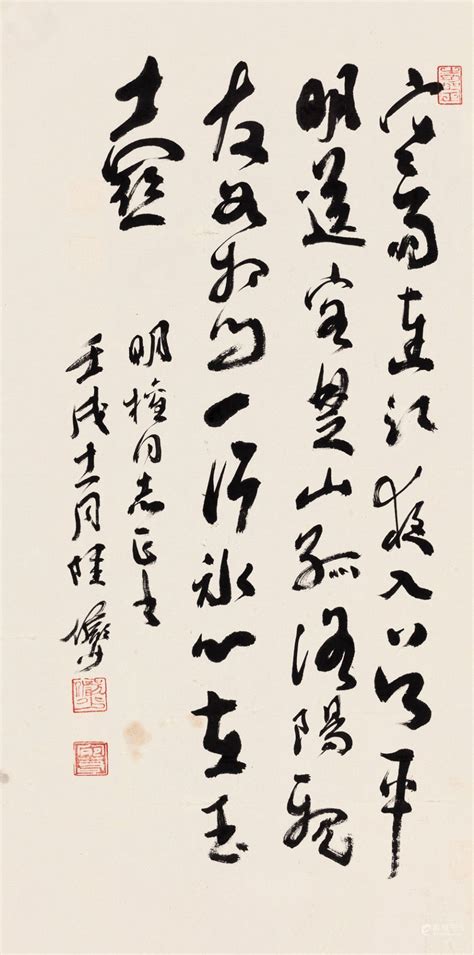 寒雨連江夜入吴平
明送客楚山孤洛陽親
友如相問一片冰心在玉
壺
明權同志正
壬戌十一月陸儼少